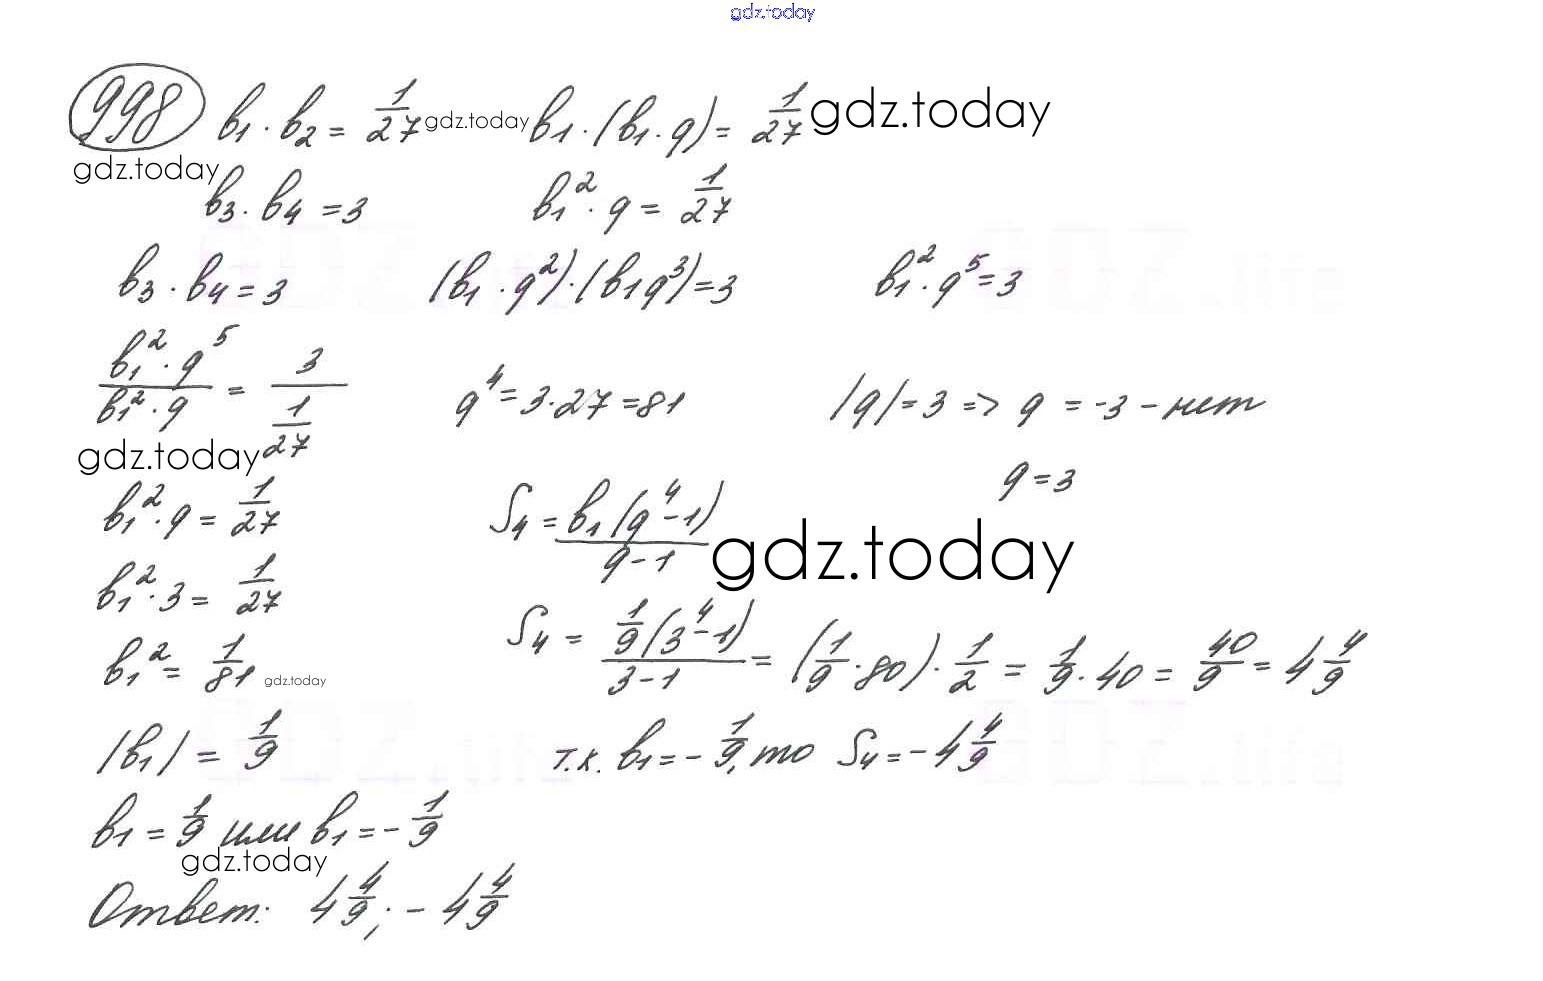 gdz.today
998 b₁ · b₂ = 1/27 gdz.today b₁ · (b₁ · q) = 1/27 gdz.today
gdz.today
b₃ · b₄ = 3 b₁² · q = 1/27
b₃ · b₄ = 3 (b₁ · q²) · (b₁q³) = 3 b₁² · q⁵ = 3
(b₁² · q⁵)/(b₁² · q) = 3/(1/27) q⁴ = 3 · 27 = 81 |q| = 3 => q = -3 - нет
gdz.today
q = 3
b₁² · q = 1/27 S₄ = b₁(q⁴ - 1)/(q - 1) gdz.today
b₁² · 3 = 1/27
S₄ = 1/9(3⁴ - 1)/(3 - 1) = (1/9 · 80) · 1/2 = 1/9 · 40 = 40/9 = 4 4/9
b₁² = 1/81 gdz.today
|b₁| = 1/9 т.к. b₁ = - 1/9, то S₄ = - 4 4/9
b₁ = 1/9 или b₁ = - 1/9
gdz.today
Ответ: 4 4/9; - 4 4/9